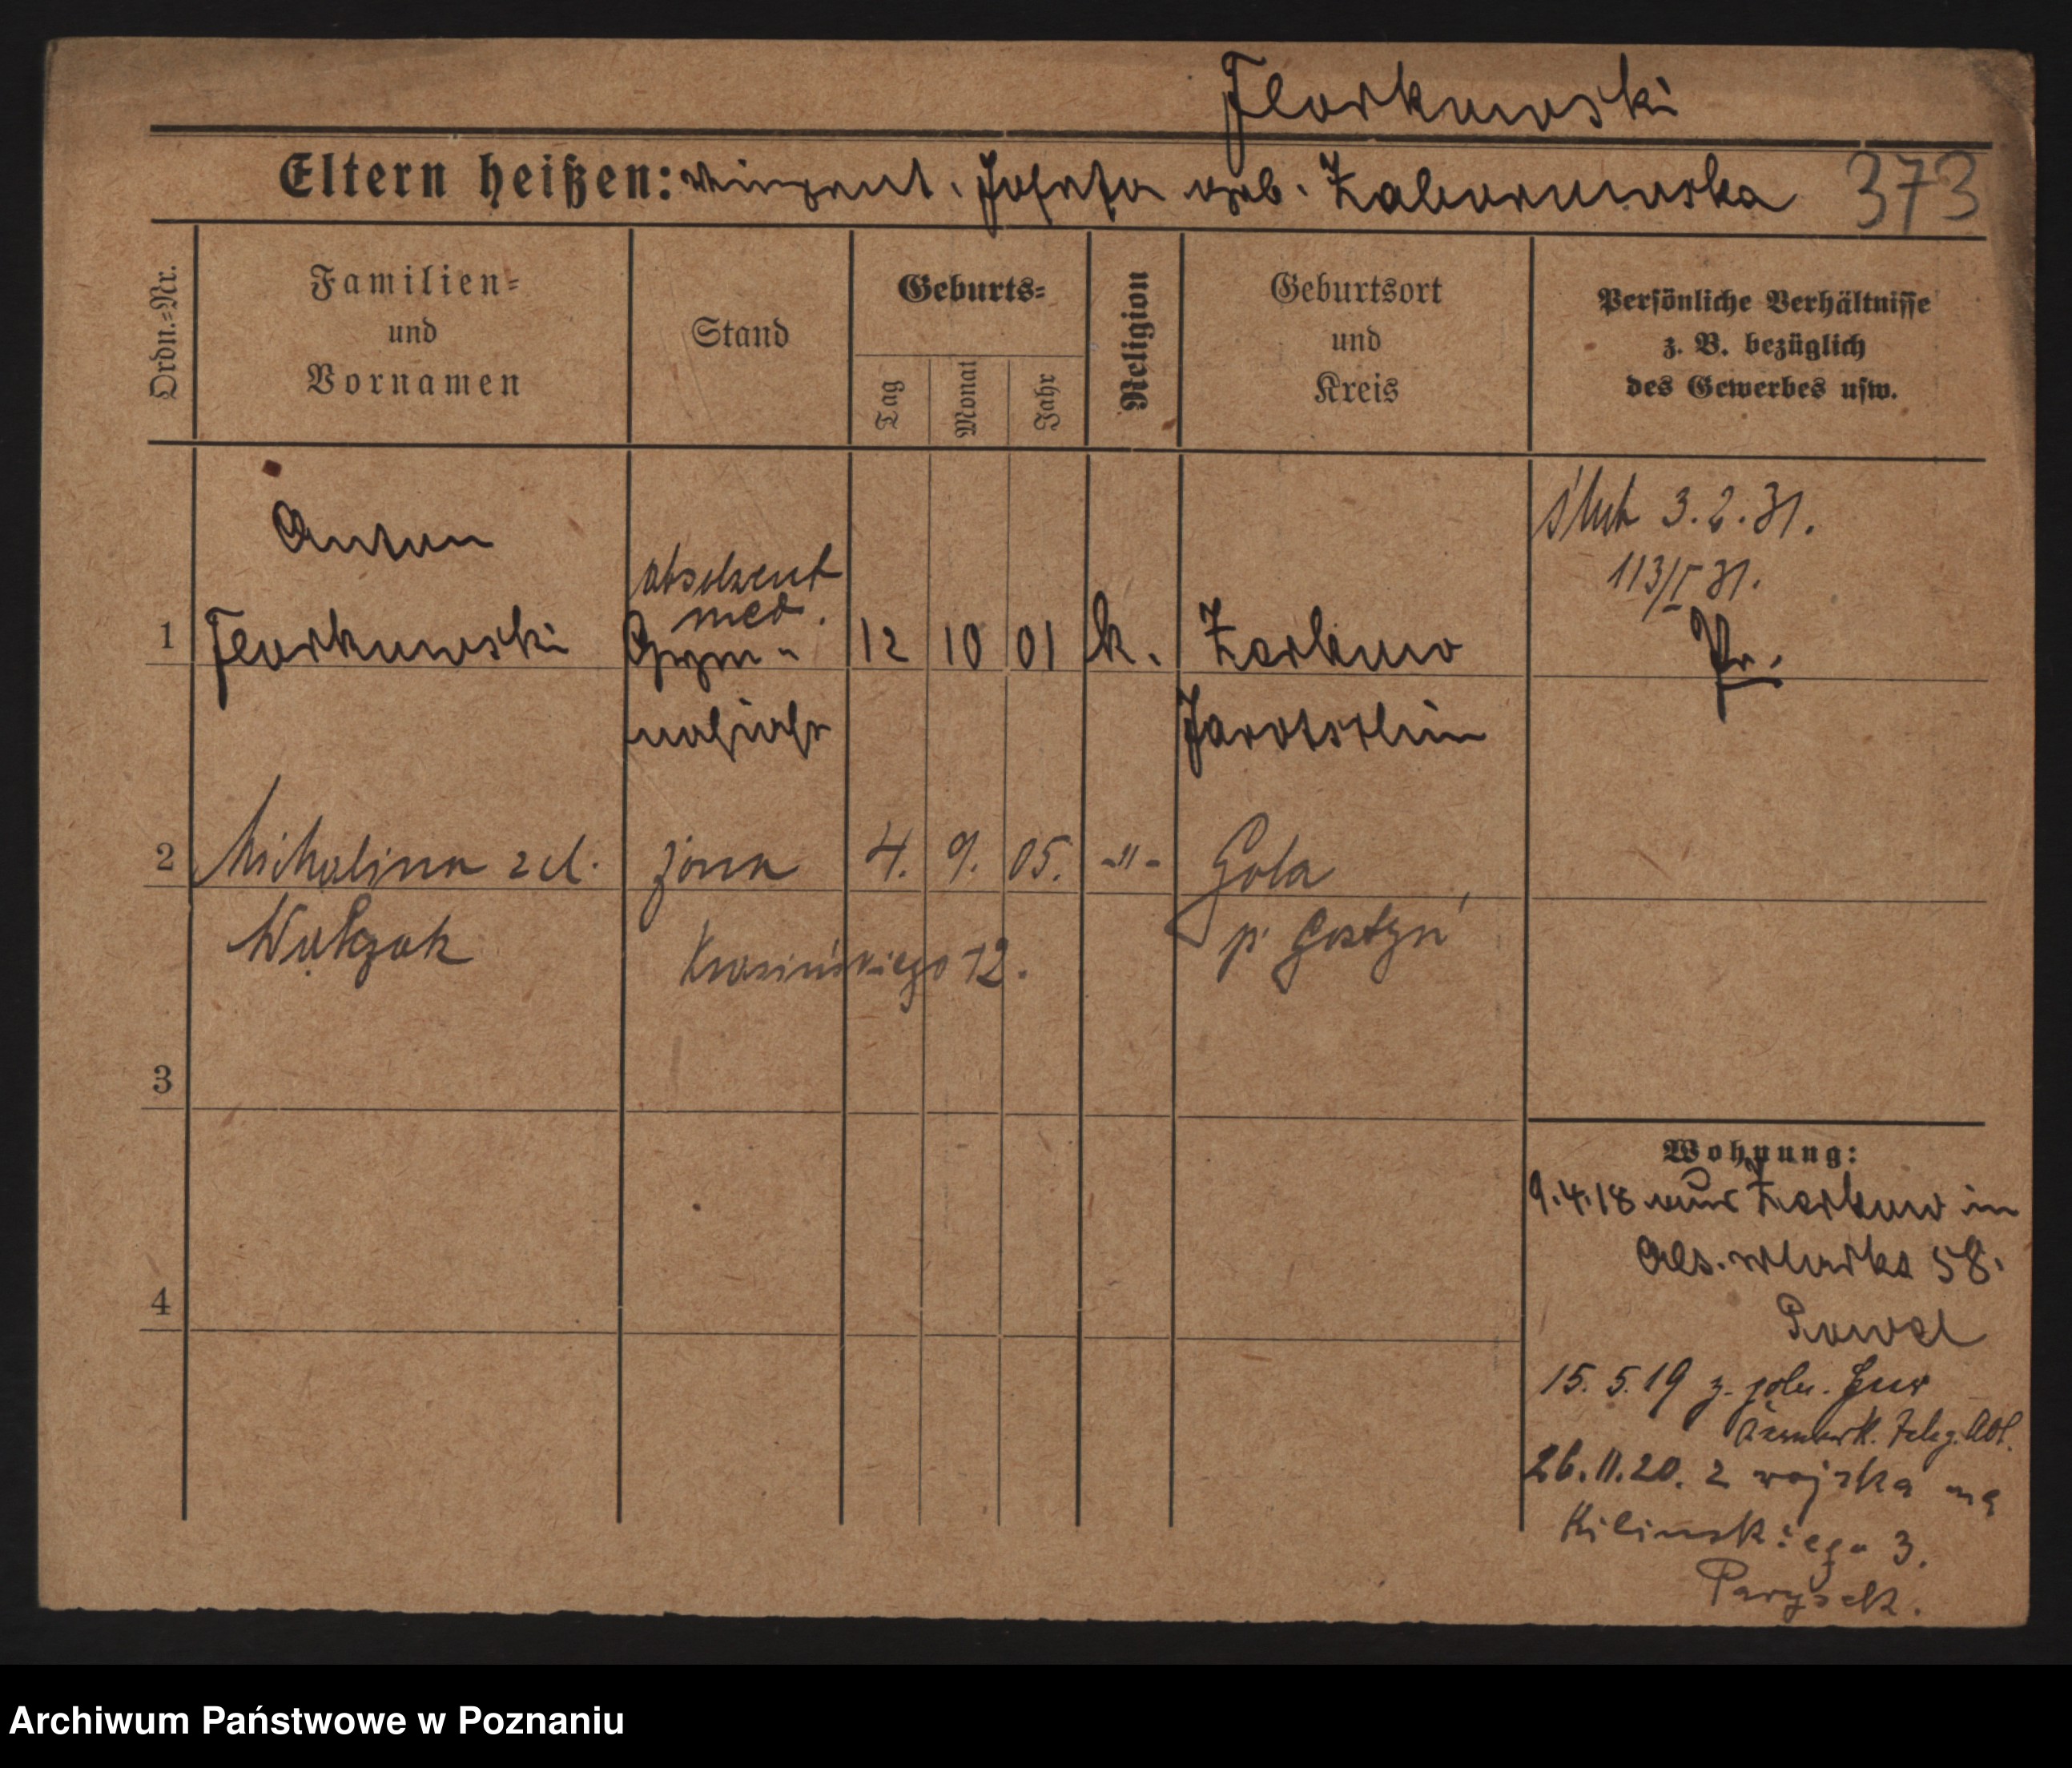 Florkowski
Eltern heißen: Vinzent. Josefa geb. Zaborowska 373
Ordn.=Nr.
Familien=
und
Vornamen
Stand
Geburts=
Tag
Monat
Jahr
Religion
Geburtsort
und
Kreis
Persönliche Verhältnisse
z. B. bezüglich
des Gewerbes usw.
ślub 3.2.31.
113/I 31.
Pr.
Anton
absolwent
med.
1 Florkowski Gym- 12 10 01 k. Zerkow
nasiast Jarotschin
2 Michalina zd. żona 4. 9. 05. -"- Gola
Walczak Krasińskiego 12. p. Gostyń
3
4
Wohnung:
9.4.18 aus Zerkow in
58.
Nowal
15.5.19 z.
Telegr. Abt.
26.11.20. z wojska na
Kilinskiego 3.
Parysek.
Archiwum Państwowe w Poznaniu